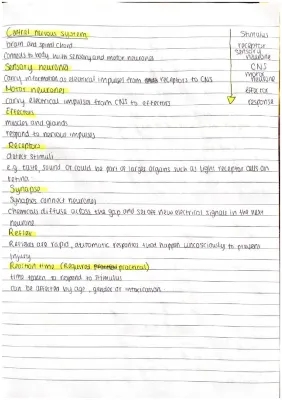 Central nervous system
brain and spinal chord
connects to body with sensory and motor neurones
Sensory neurone
Carry information as electrical impulses from receptors to CNS
Motor neurones
carry electrical impulses from CNS to effectors
Effectors
muscles and glands
respond to nervous impulses
Receptors
detect stimuli
e.g. taste, sound or could be part of larger organs such as light receptor cells on
retina
Synapse
Synapses connect neurones
Chemicals diffuse across the gap and set off new electrical signals in the next
neurone
Reflex
Reflexes are rapid, automatic responses that happen unconsciously to prevent
injury
Reaction time (Required practical)
time taken to respond to stimulus
can be affected by age, gender or intoxication
Stimulus
receptor
sensory
neurone
CNS
motor
neurone
effector
response